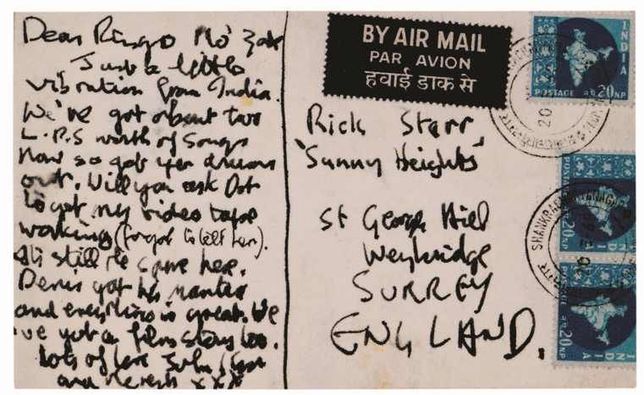 Dear Ringo Mo' Zak
Just a little
vibration from India.
We've got about two
L.P.S worth of songs
now so get yer drums
out. Will you ask Dot
to get my video tape
working (forgot to tell her).
still the same here.
Denis got his mantra
and everything is great. We
've got a film story too.
Lots of love John
and xxx
BY AIR MAIL
PAR AVION
हवाई डाक से
Rick Starr
'Sunny Heights'
St George Hill
Weybridge
SURREY
ENGLAND.
INDIA
POSTAGE 20 NP
INDIA
POSTAGE 20 NP
INDIA
POSTAGE 20 NP